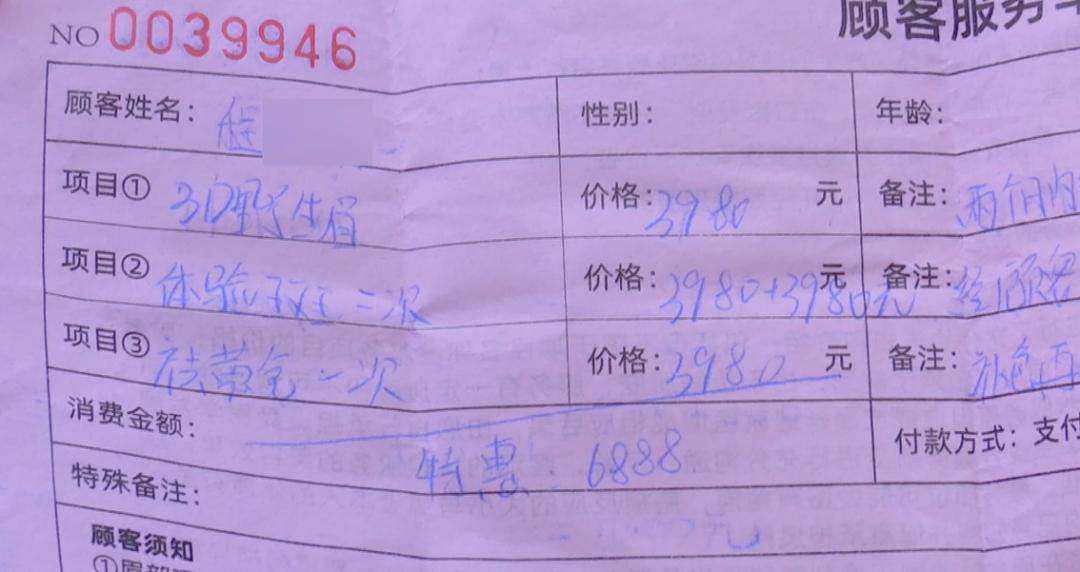 NO 0039946
顾客服务
顾客姓名: 程 性别: 年龄:
项目① 3D野生眉 价格: 3980 元 备注: 两个月内
项目② 体验 二次 价格: 3980+3980元 元 备注:
项目③ 祛黄 一次 价格: 3980 元 备注: 补色
消费金额: 付款方式: 支付
特惠 6888
特殊备注:
顾客须知